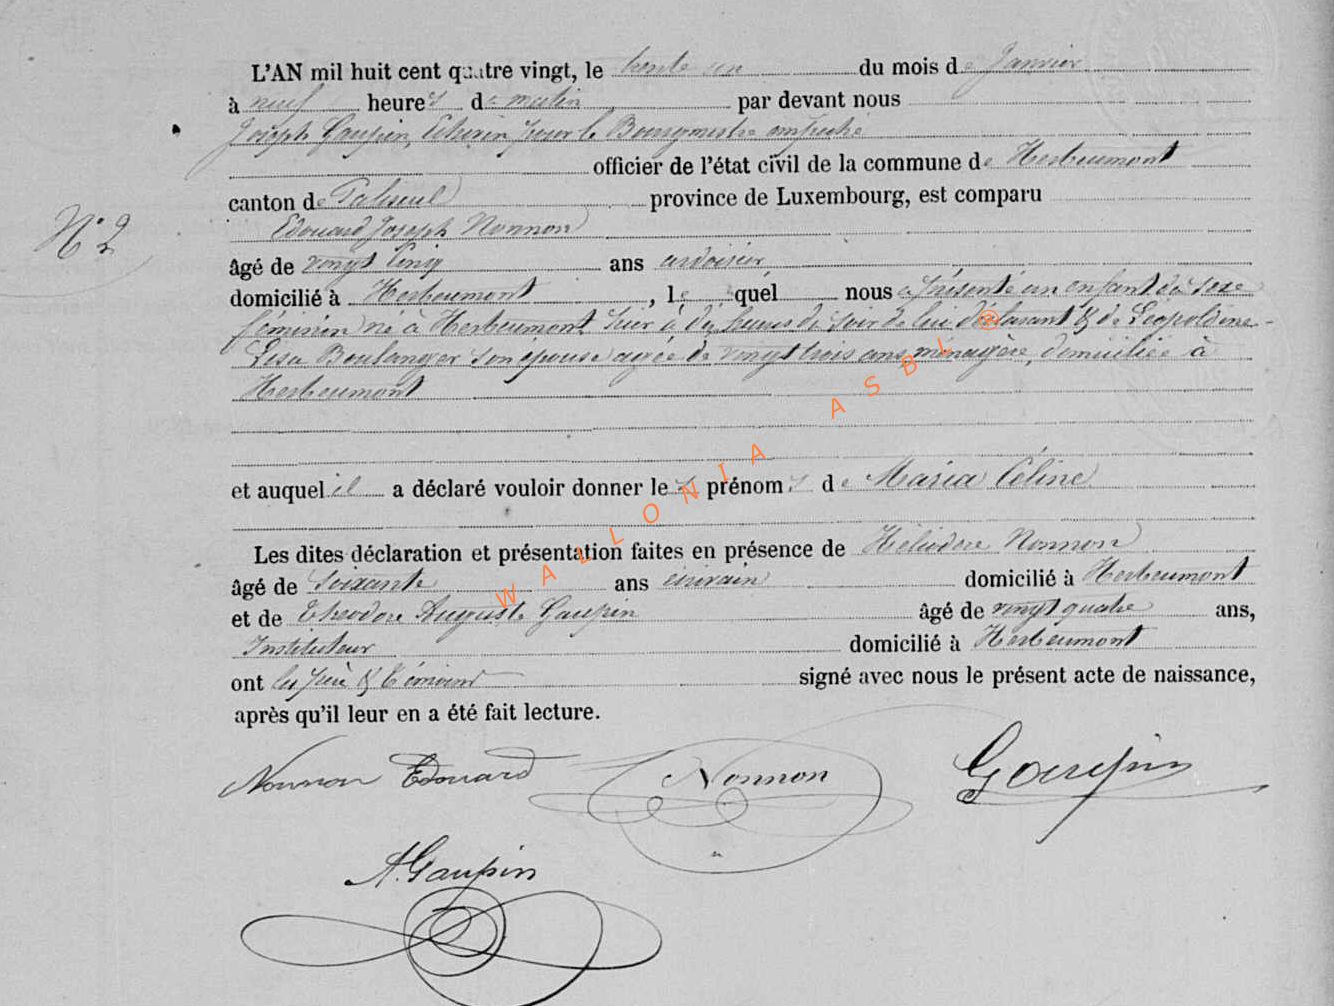 L'AN mil huit cent quatre vingt, le trente un du mois de Janvier
à neuf heures du matin par devant nous
Joseph Gaupin, Echevin pour le Bourgmestre empêché
officier de l'état civil de la commune de Herbeumont
canton de Paliseul province de Luxembourg, est comparu
Edouard Joseph Nonnon
N° 2
âgé de vingt cinq ans ardoisier
domicilié à Herbeumont, lequel nous a présenté un enfant du sexe
féminin né à Herbeumont hier à dix heures du soir de lui déclarant & de Léopoldine-
Lisa Boulanger son épouse agée de vingt trois ans, ménagère, domiciliée à
Herbeumont
et auquel il a déclaré vouloir donner les prénoms de Maria Céline
Les dites déclaration et présentation faites en présence de Héliodore Nonnon
âgé de soixante ans écrivain domicilié à Herbeumont
et de Théodore Auguste Gaupin âgé de vingt quatre ans,
Instituteur domicilié à Herbeumont
ont les père & témoins signé avec nous le présent acte de naissance,
après qu'il leur en a été fait lecture.
Nonnon Edouard Nonnon Gaupin
A. Gaupin
WALLONIA ASBL ®